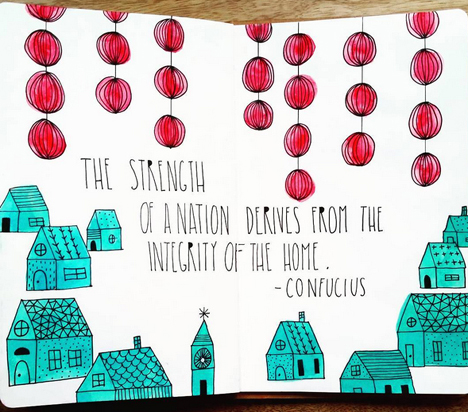 THE STRENGTH
OF A NATION DERIVES FROM THE
INTEGRITY OF THE HOME.
-CONFUCIUS